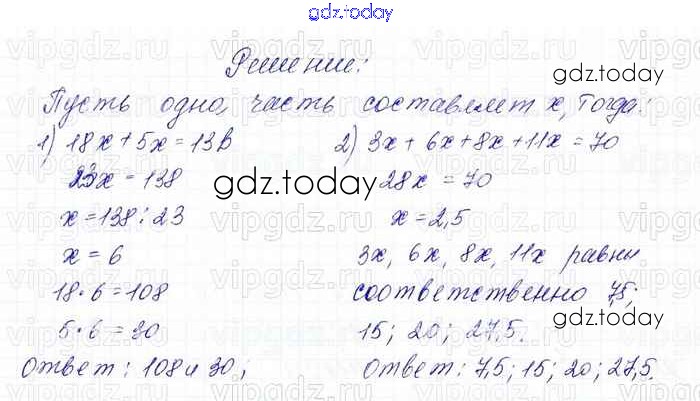 gdz.today
Решение:
gdz.today
Пусть одна часть составляет x, тогда:
1) 18x + 5x = 138
23x = 138
x = 138 : 23
x = 6
18 · 6 = 108
5 · 6 = 30
ответ: 108 и 30;
gdz.today
2) 3x + 6x + 8x + 11x = 70
28x = 70
x = 2,5
3x, 6x, 8x, 11x равны
соответственно 7,5;
15; 20; 27,5.
ответ: 7,5; 15; 20; 27,5.
gdz.today
vipgdz.ru